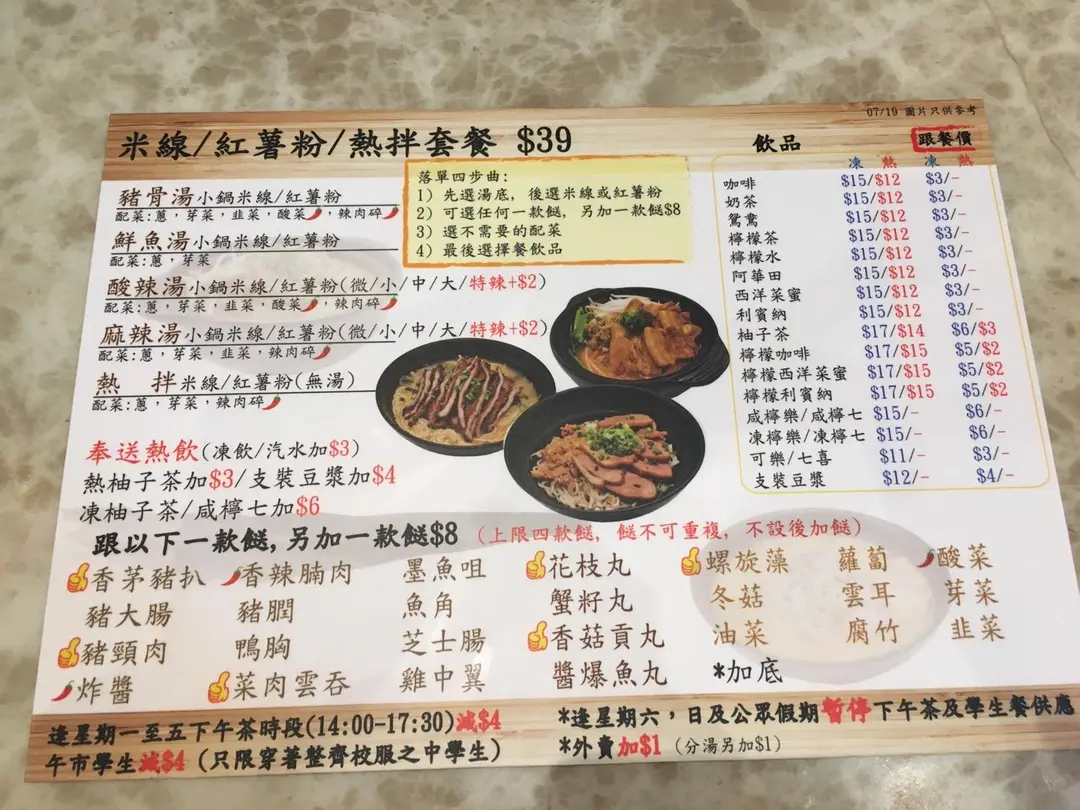 07/19 圖片只供參考
米線/紅薯粉/熱拌套餐 $39
豬骨湯小鍋米線/紅薯粉
配菜:蔥，芽菜，韭菜，酸菜，辣肉碎
鮮魚湯小鍋米線/紅薯粉
配菜:蔥，芽菜
酸辣湯小鍋米線/紅薯粉(微/小/中/大/特辣+$2)
配菜:蔥，芽菜，韭菜，酸菜，辣肉碎
麻辣湯小鍋米線/紅薯粉(微/小/中/大/特辣+$2)
配菜:蔥，芽菜，韭菜，辣肉碎
熱 拌米線/紅薯粉(無湯)
配菜:蔥，芽菜，辣肉碎
落單四步曲:
1) 先選湯底, 後選米線或紅薯粉
2) 可選任何一款餸, 另加一款餸$8
3) 選不需要的配菜
4) 最後選擇餐飲品
飲品 跟餐價
凍 熱 凍 熱
咖啡 $15/$12 $3/-
奶茶 $15/$12 $3/-
鴛鴦 $15/$12 $3/-
檸檬茶 $15/$12 $3/-
檸檬水 $15/$12 $3/-
阿華田 $15/$12 $3/-
西洋菜蜜 $15/$12 $3/-
利賓納 $15/$12 $3/-
柚子茶 $17/$14 $6/$3
檸檬咖啡 $17/$15 $5/$2
檸檬西洋菜蜜 $17/$15 $5/$2
檸檬利賓納 $17/$15 $5/$2
咸檸樂/咸檸七 $15/- $6/-
凍檸樂/凍檸七 $15/- $6/-
可樂/七喜 $11/- $3/-
支裝豆漿 $12/- $4/-
奉送熱飲(凍飲/汽水加$3)
熱柚子茶加$3/支裝豆漿加$4
凍柚子茶/咸檸七加$6
跟以下一款餸,另加一款餸$8 (上限四款餸, 餸不可重複, 不設後加餸)
香茅豬扒 香辣腩肉 墨魚咀 花枝丸 螺旋藻 蘿蔔 酸菜
豬大腸 豬膶 魚角 蟹籽丸 冬菇 雲耳 芽菜
豬頸肉 鴨胸 芝士腸 香菇貢丸 油菜 腐竹 韭菜
炸醬 菜肉雲吞 雞中翼 醬爆魚丸 *加底
逢星期一至五下午茶時段(14:00-17:30)減$4
午市學生減$4 (只限穿著整齊校服之中學生)
*逢星期六，日及公眾假期暫停下午茶及學生餐供應
*外賣加$1 (分湯另加$1)